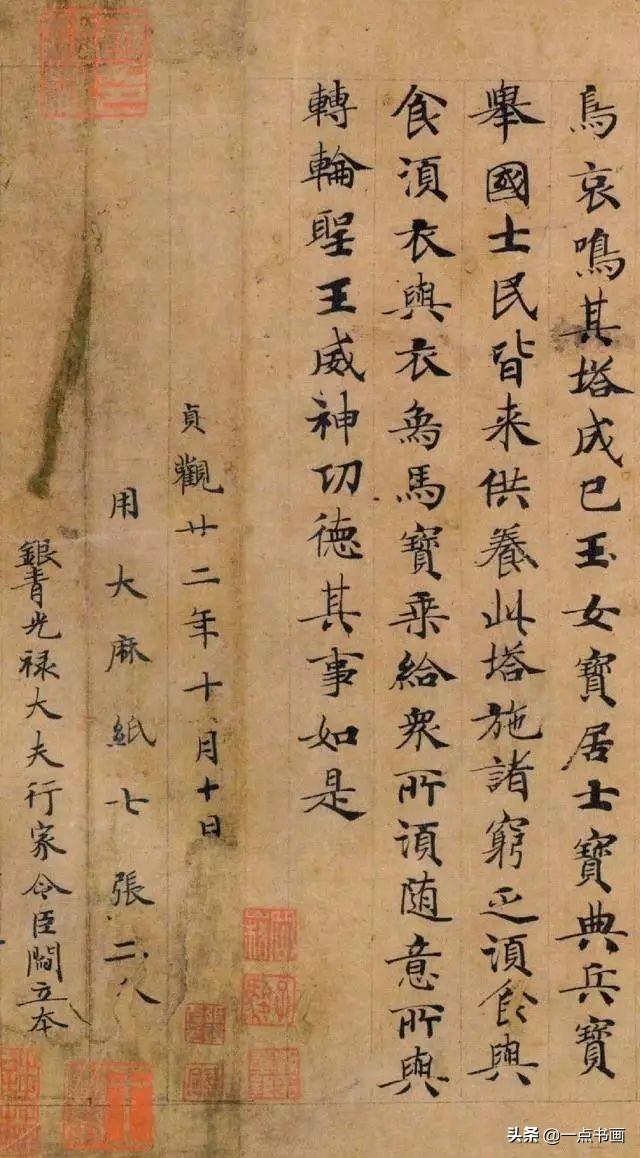 鳥哀鳴其塔成已玉女寶居士寶典兵寶
舉國士民皆来供養此塔施諸窮乏須食與
食須衣與衣象馬寶乘給眾所須随意所與
轉輪聖王威神功德其事如是
貞觀廿二年十月十日
用大麻紙七張二分
銀青光禄大夫行家令臣閻立本
头条 @一点书画